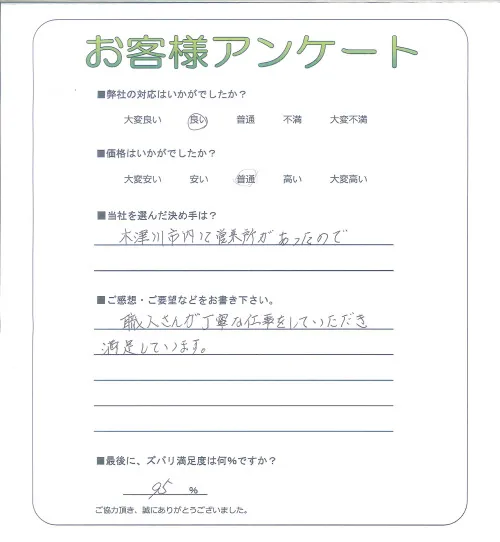 お客様アンケート
■弊社の対応はいかがでしたか？
大変良い 良い 普通 不満 大変不満
■価格はいかがでしたか？
大変安い 安い 普通 高い 大変高い
■当社を選んだ決め手は？
木津川市内に営業所があったので
■ご感想・ご要望などをお書き下さい。
職人さんが丁寧な仕事をしていただき
満足しています。
■最後に、ズバリ満足度は何%ですか？
95 %
ご協力頂き、誠にありがとうございました。